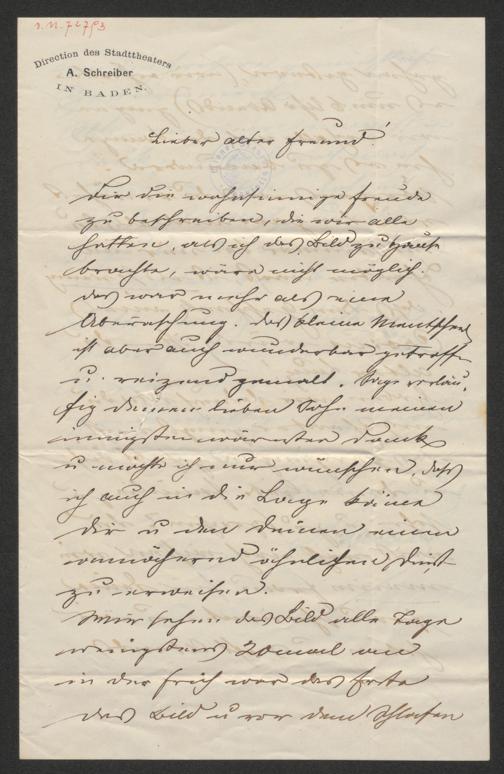 I.N. 72793
Direction des Stadttheaters
A. Schreiber
IN BADEN.
Lieber alter Freund!
Dir die wahnsinnige Freude
zu beschreiben, die wir alle
hatten, als ich das Bild zu Hause
brachte, wäre nicht möglich.
das war mehr als eine
Überraschung. das kleine Mentscherl
ist aber auch wunderbar getroffen
u. reizend gemalt. Sage vorläu-
fig deinem lieben Sohn meinen
innigsten wärmsten Dank
u möchte ich nur wünschen, dass
ich auch in die Lage käme
Dir u den Deinen einen
annähernd ähnlichen Dienst
zu erweisen.
Wir sehen das Bild alle Tage
wenigstens 20mal an
in der früh war das Erste
das Bild u vor dem Schlafen